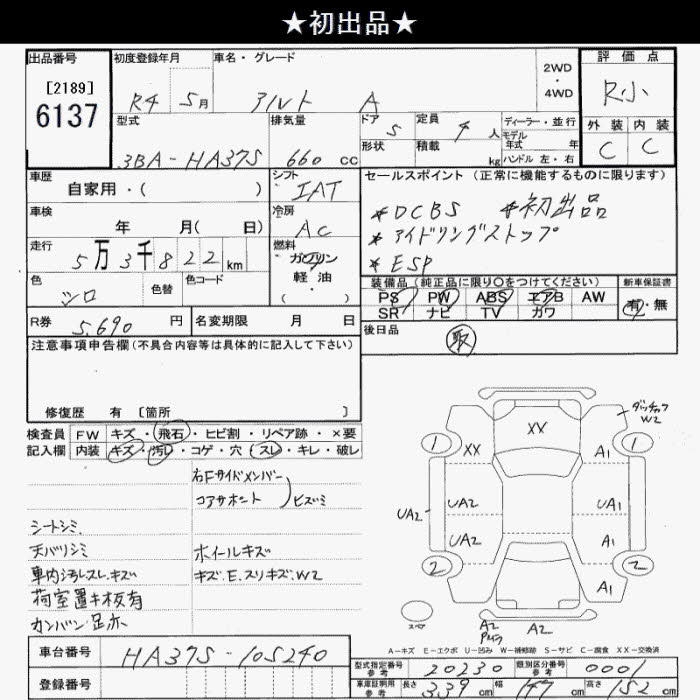 ★初出品★
出品番号
[2189]
6137
初度登録年月 R4 5月
車名・グレード アルト A
2WD・4WD
評価点 R小
外装 内装
C C
型式 3BA-HA37S
排気量 660 cc
ドア 5
形状
定員 4 人
積載 kg
ディーラー・並行
モデル年式 年
ハンドル 左・右
車歴 自家用・( )
シフト IAT
セールスポイント(正常に機能するものに限ります)
*DCBS *初出品
*アイドリングストップ
*ESP
車検 年 月( 日)
冷房 AC
走行 5万3千822km
燃料 ガソリン 軽油 ・( )
色 シロ
色替
色コード
装備品(純品に限り○をつけてください)
PS PW ABS エアB AW
SR ナビ TV カワ
新車保証書
有・無
R券 5,690 円
名変期限 月 日
後日品 取
注意事項申告欄(不具合内容等は具体的に記入して下さい)
修復歴 有 [箇所 ]
検査員記入欄
FW キズ・飛石・ヒビ割・リペア跡・×要
内装 キズ・汚レ・コゲ・穴・スレ・キレ・破レ
右Fサイドメンバー
コアサポート
ヒズミ
シートシミ
天バリシミ
車内汚レスレ・キズ
荷室置キ板有
ホイールキズ
キズ.E.スリキズ.W2
XX
XX
W2
1 1
A1
UA2 UA2 UA1
UA2 A1
2 2
A1
スペア
A2 A2
A-キズ E-エクボ U-凹み W-補修跡 S-サビ C-腐食 XX-交換済
車台番号 HA37S-105240
登録番号
型式指定番号 参考 20230
類別区分番号 参考 0001
車庫証明用 参考 長さ 339cm 幅 147cm 高さ 152cm